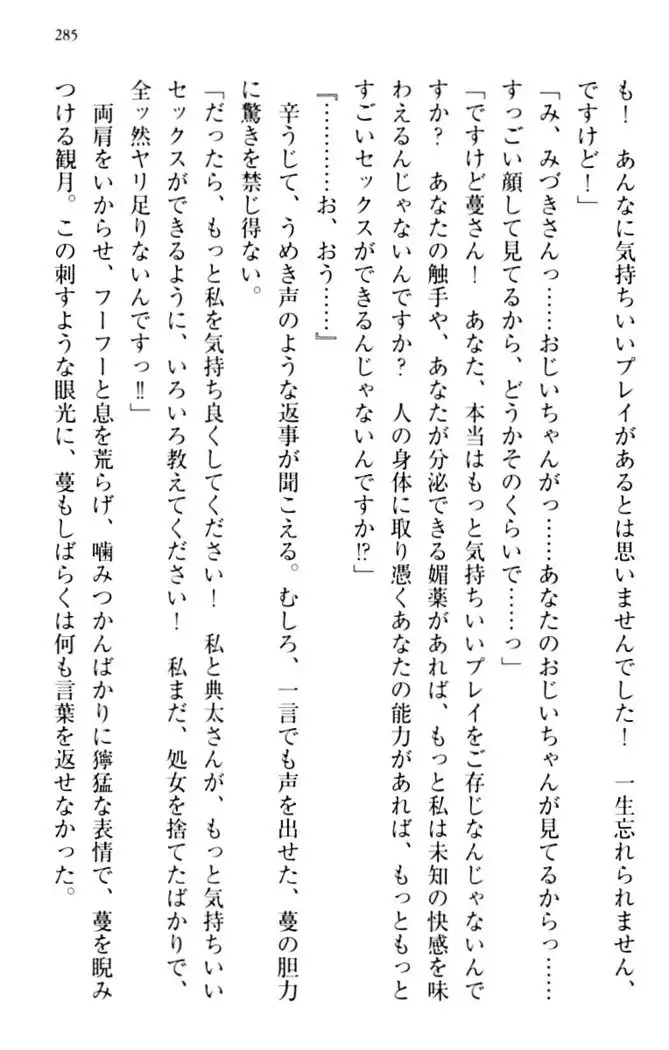 285
も！　あんなに気持ちいいプレイがあるとは思いませんでした！　一生忘れられません、
ですけど！」
「み、みづきさんっ……おじいちゃんがっ……あなたのおじいちゃんが見てるからっ……
すっごい顔して見てるから、どうかそのくらいで……っ」
「ですけど蔓さん！　あなた、本当はもっと気持ちいいプレイをご存じなんじゃないんで
すか？　あなたの触手や、あなたが分泌できる媚薬があれば、もっと私は未知の快感を味
わえるんじゃないんですか？　人の身体に取り憑くあなたの能力があれば、もっともっと
すごいセックスができるんじゃないんですか⁉」
『…………お、おう……』
　辛うじて、うめき声のような返事が聞こえる。むしろ、一言でも声を出せた、蔓の胆力
に驚きを禁じ得ない。
「だったら、もっと私を気持ち良くしてください！　私と典太さんが、もっと気持ちいい
セックスができるように、いろいろ教えてください！　私まだ、処女を捨てたばかりで、
全ッ然ヤリ足りないんですっ‼」
　両肩をいからせ、フーフーと息を荒らげ、噛みつかんばかりに獰猛な表情で、蔓を睨み
つける観月。この刺すような眼光に、蔓もしばらくは何も言葉を返せなかった。